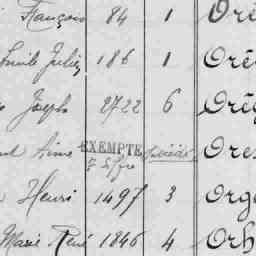 François 84 1 Oré
Emile Julien 186 1 Oré
Joseph 2722 6 Orég
Aimé EXEMPTÉ Ores
Henri 1497 3 Orge
Marie René 1846 4 Orh